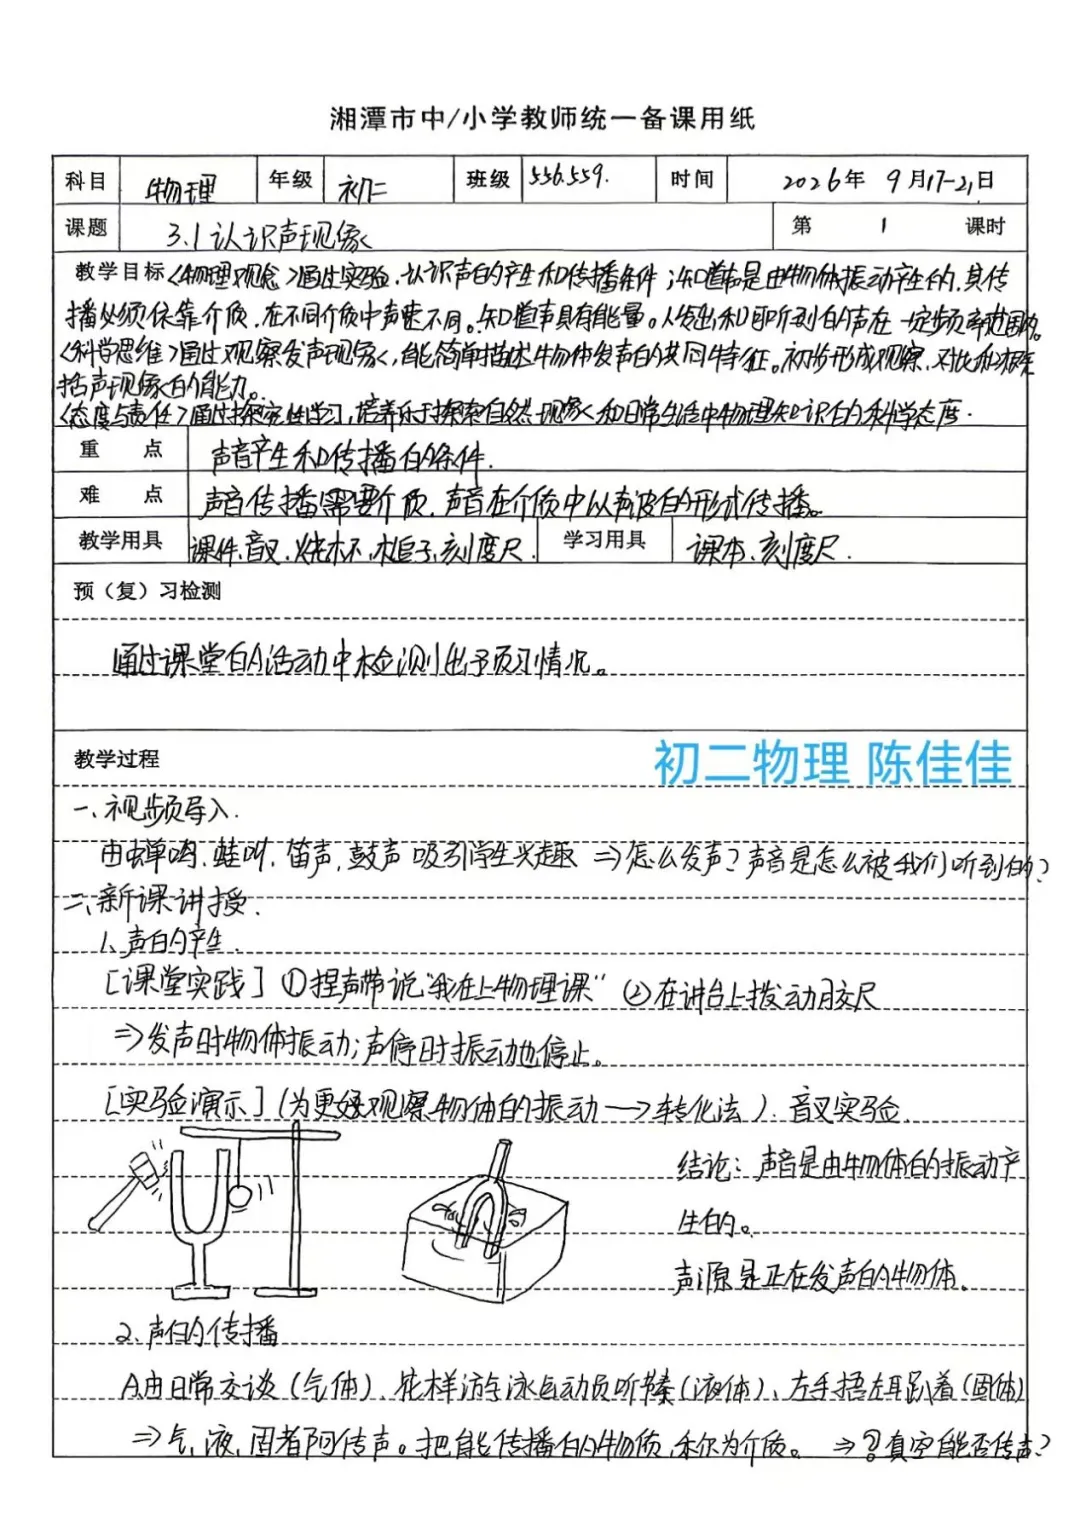 湘潭市中/小学教师统一备课用纸
科目 物理 年级 初二 班级 556.559. 时间 2026年 9月17-21日
课题 3.1 认识声现象 第 1 课时
教学目标<物理观念>通过实验,认识声的产生和传播条件;知道声是由物体振动产生的,其传
播必须依靠介质,在不同介质中声速不同。知道声具有能量。人发出和可听到的声在一定频率范围内。
<科学思维>通过观察发声现象,能简单描述物体发声的共同特征。初步形成观察、对比和概
括声现象的能力。
<态度与责任>通过探究性学习,培养乐于探索自然现象和日常生活中物理知识的科学态度.
重 点 声音产生和传播的条件.
难 点 声音传播需要介质.声音在介质中以声波的形式传播。
教学用具 课件.音叉.烧杯.槌子.刻度尺. 学习用具 课本.刻度尺.
预(复)习检测
通过课堂的活动中检测出予页习情况。
教学过程
初二物理 陈佳佳
一、视频导入.
由蝉鸣.蛙叫.笛声.鼓声吸引学生兴趣 ⇒怎么发声?声音是怎么被我们听到的?
二、新课讲授.
1、声的产生.
[课堂实践] ①捏声带说“我在上物理课” ②在讲台上拨动胶尺
⇒发声时物体振动;声停时振动也停止。
[实验演示] (为更好观察物体的振动—>转化法). 音叉实验.
结论:声音是由物体的振动产
生的。
声源是正在发声的物体.
2.声的传播
A.由日常交谈(气体)、花样游泳运动员听(液体)、左手捂左耳趴着(固体)
⇒气.液.固者阿传声。把能传播的物质,称为介质。 ⇒?真空能否传声?